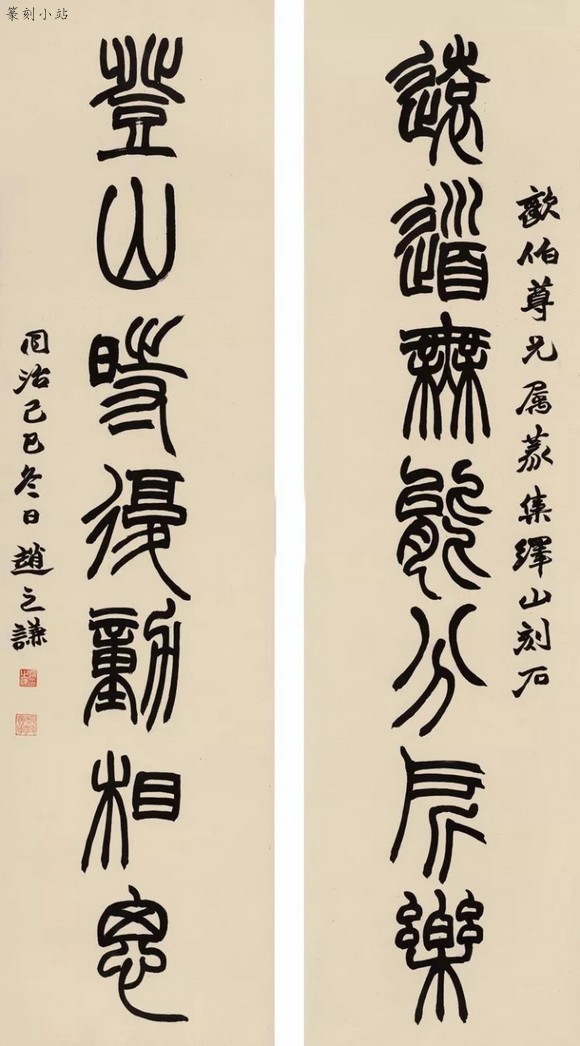 篆刻小站
伯尊兄属篆集繹山刻石
遠道無能分所樂
登山時復動相思
同治己巳冬日趙之謙